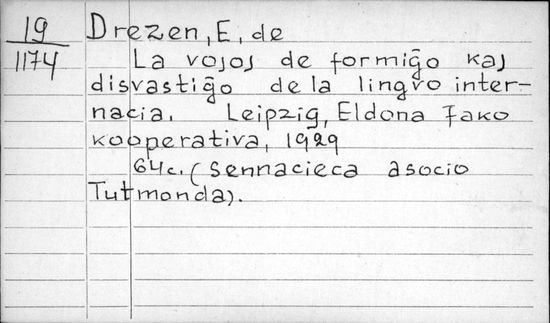 19
1174
Drezen, E, de
La vojoj de formiĝo kaj
disvastiĝo de la lingvo inter-
nacia. Leipzig, Eldona Fako
kooperativa, 1929
64c. (Sennacieca asocio
Tutmonda).